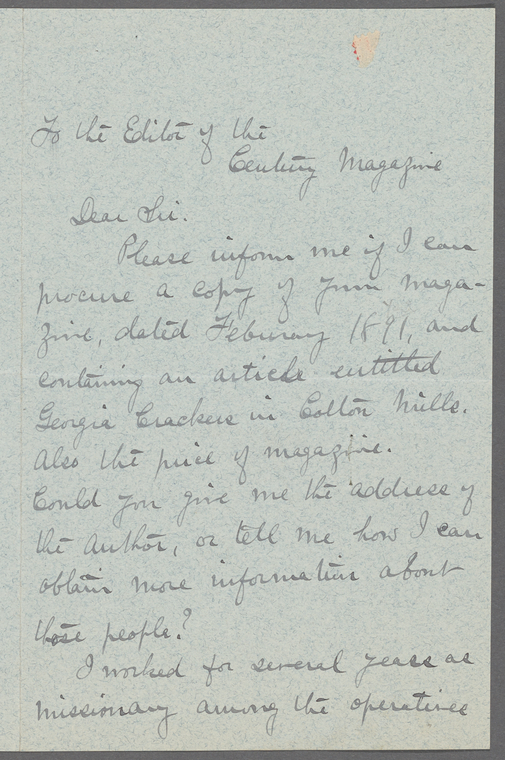 To the Editor of the
Century Magazine
Dear Sir.
Please inform me if I can
procure a copy of your maga-
zine, dated Feburary 1891, and
containing an article entitled
Georgia Crackers in Cotton Mills.
Also the price of magazine.
Could you give me the address of
the author, or tell me how I can
obtain more information about
those people?
I worked for several years as
missionary among the operatives